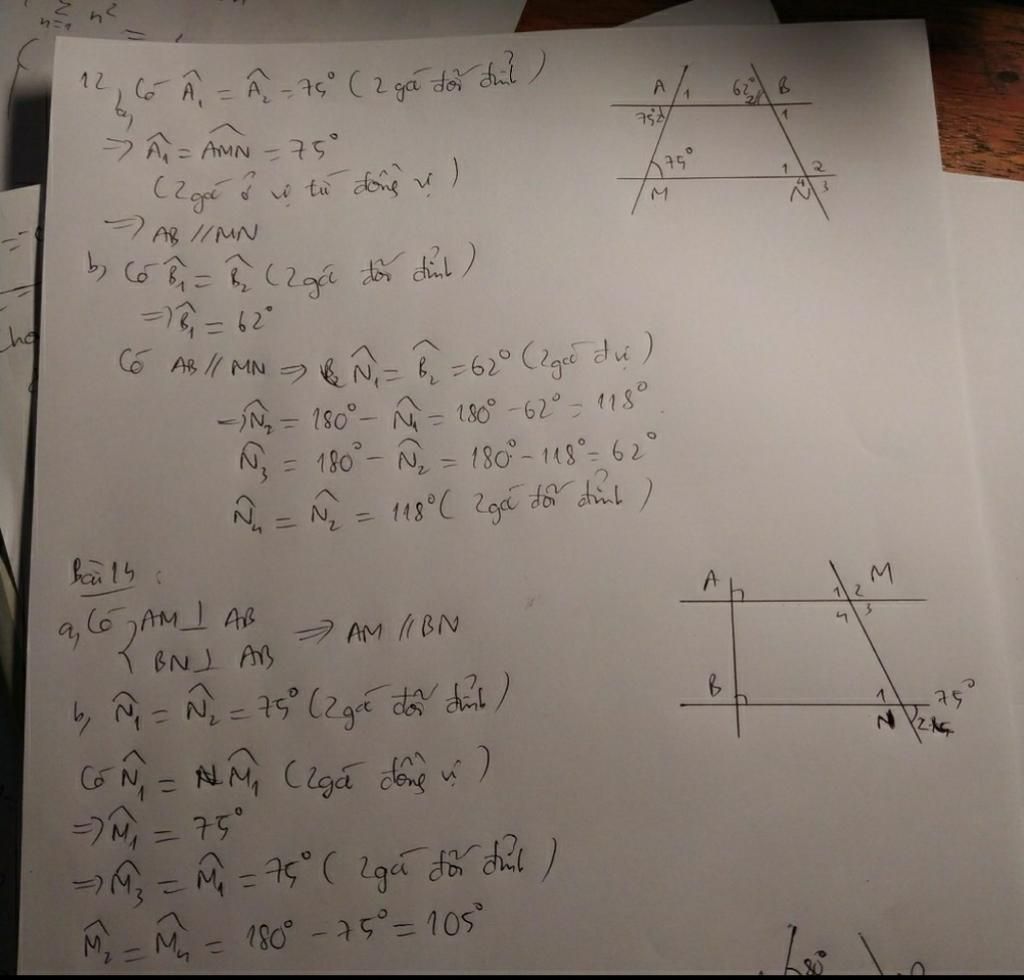 ∑ n²
n=1
=
12, Có Â₁ = Â₂ = 75° (2 góc đối đỉnh)
a,
⇒ Â₁ = AMN̂ = 75°
(2 góc ở vị trí đồng vị)
⇒ AB // MN
b, Có B̂₁ = B̂₂ (2 góc đối đỉnh)
⇒ B̂₁ = 62°
Có AB // MN ⇒ N̂₁ = B̂₂ = 62° (2 góc đ vị)
⇒ N̂₂ = 180° - N̂₁ = 180° - 62° = 118°
N̂₃ = 180° - N̂₂ = 180° - 118° = 62°
N̂₄ = N̂₂ = 118° (2 góc đối đỉnh)
A 1 62° 2 B
75° 2 1
75° 1 2
M 4 N 3
Bài 14:
a, Có { AM ⊥ AB
BN ⊥ AB ⇒ AM // BN
b, N̂₁ = N̂₂ = 75° (2 góc đối đỉnh)
Có N̂₁ = M̂₁ (2 góc đồng vị)
⇒ M̂₁ = 75°
⇒ M̂₃ = M̂₁ = 75° (2 góc đối đỉnh)
M̂₂ = M̂₄ = 180° - 75° = 105°
A 1 2 M
4 3
B 1 75°
N 2
80°